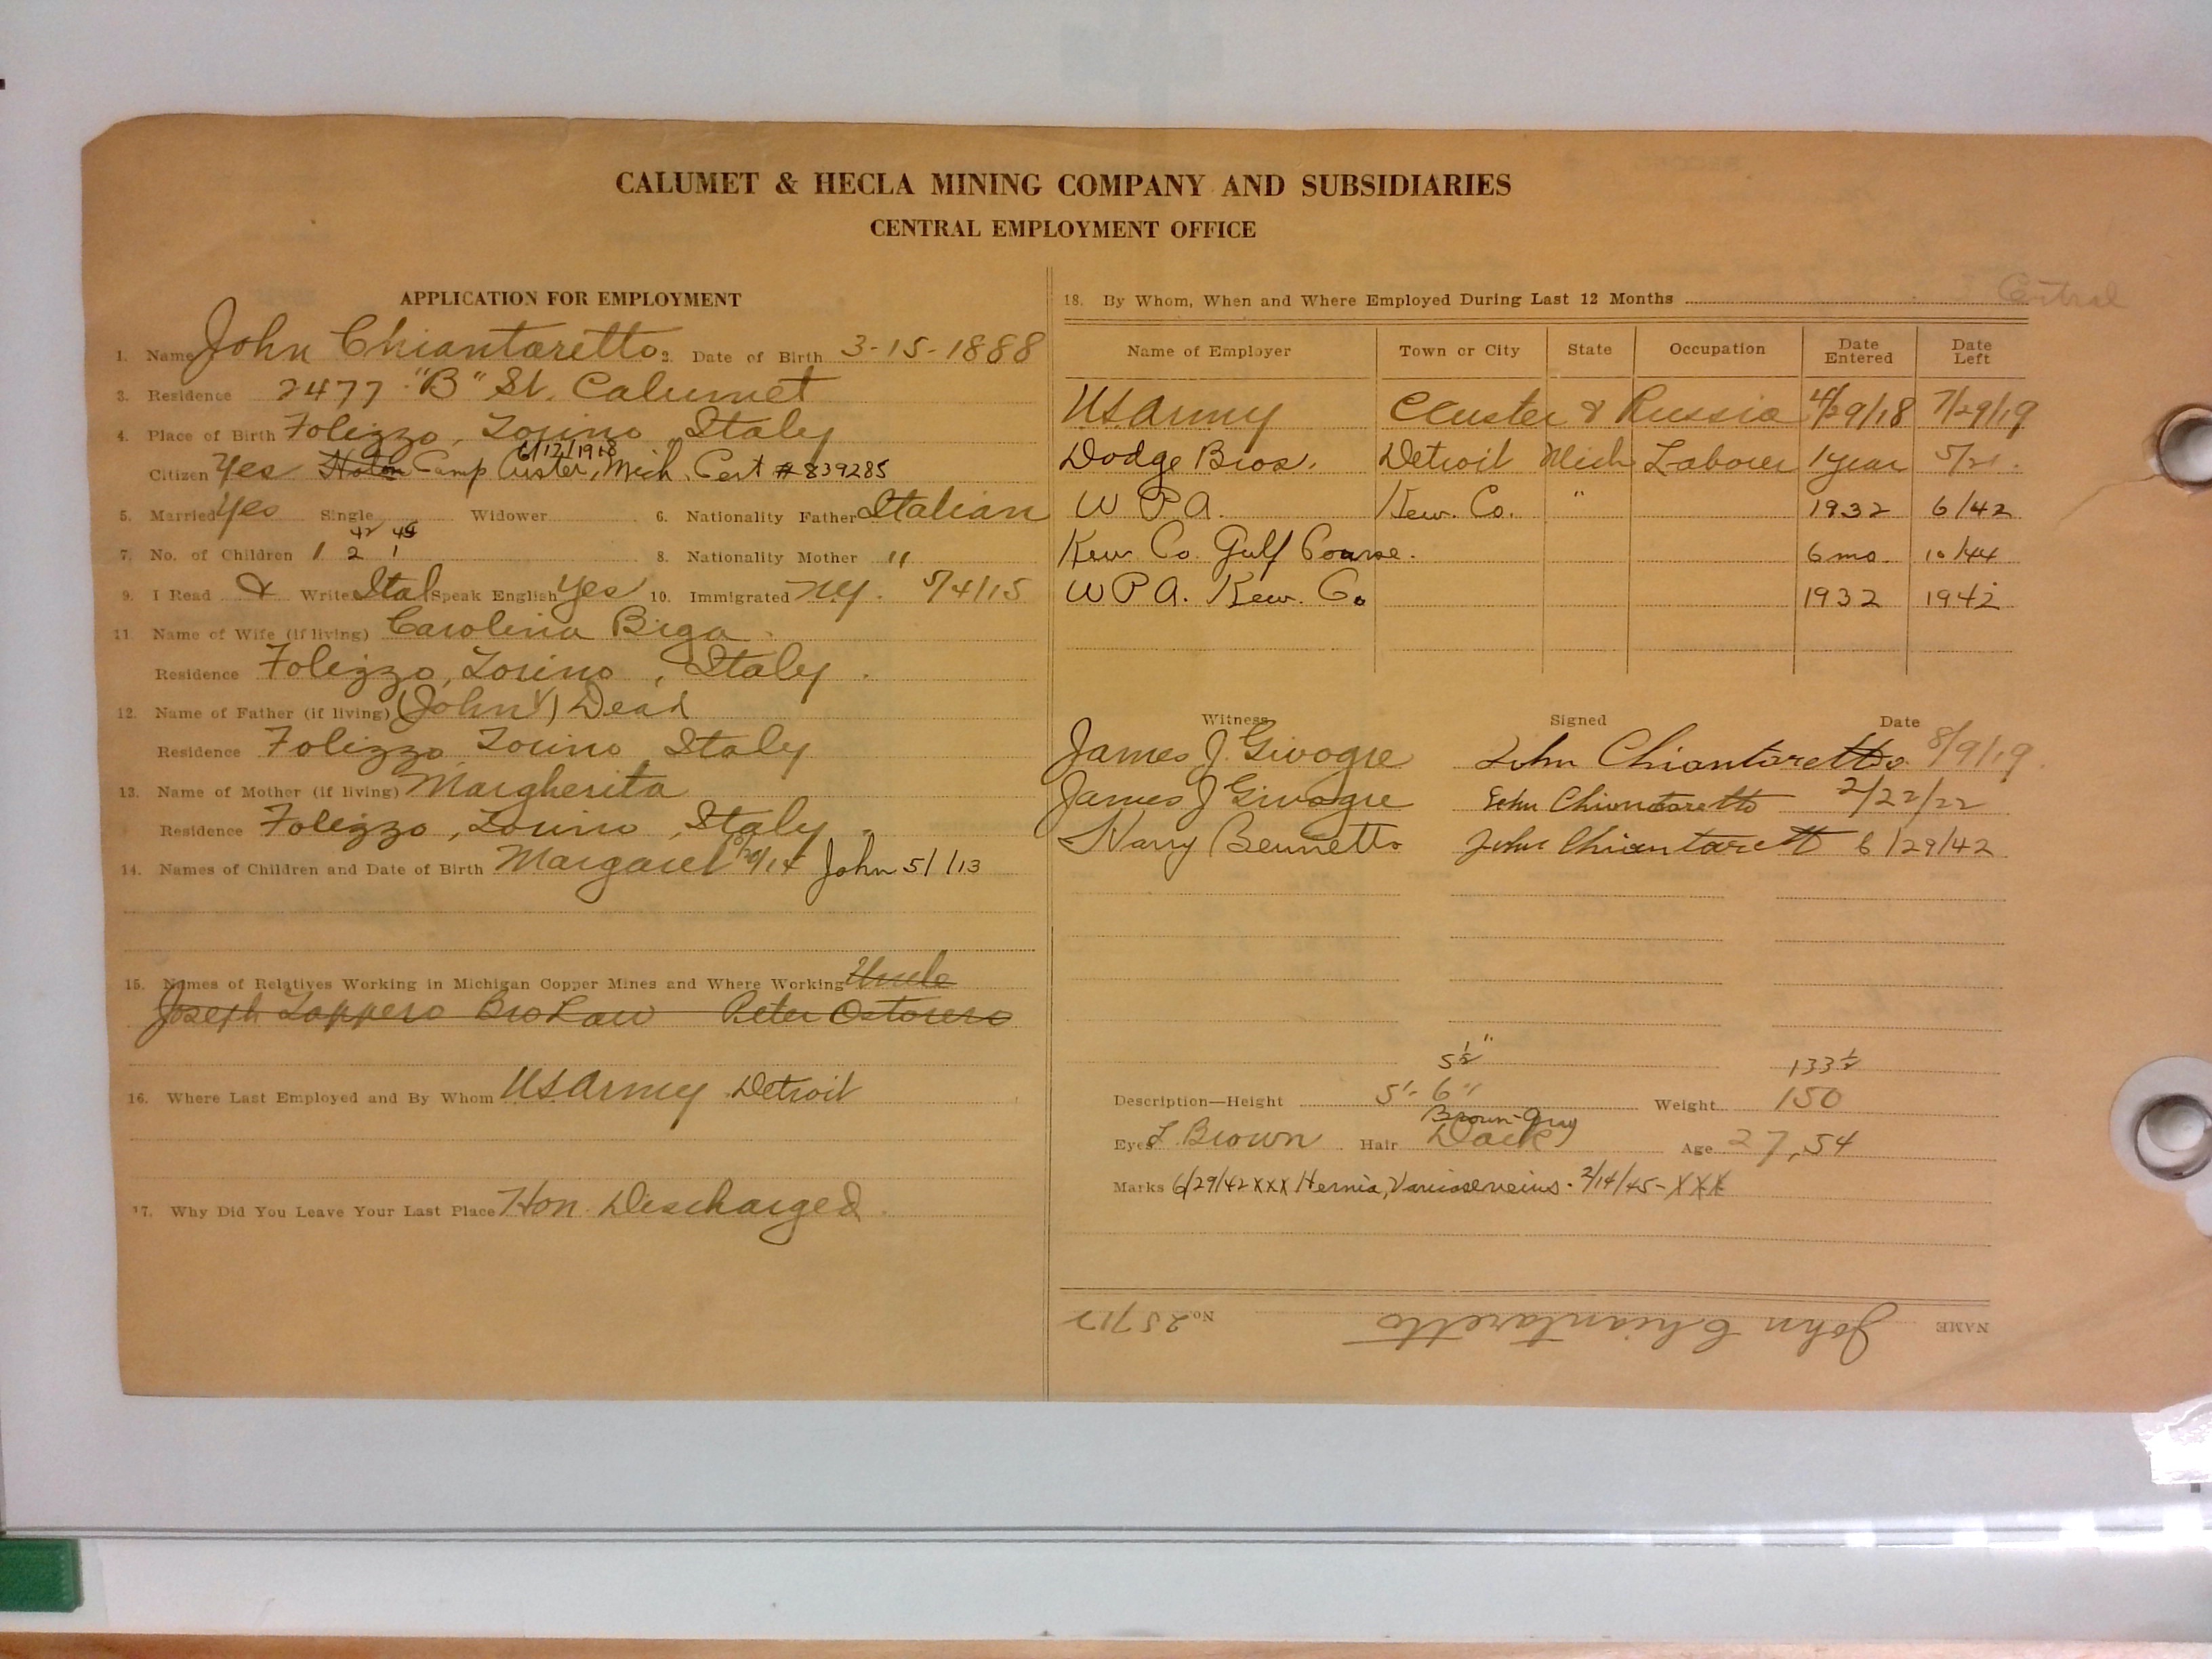 CALUMET & HECLA MINING COMPANY AND SUBSIDIARIES
CENTRAL EMPLOYMENT OFFICE
APPLICATION FOR EMPLOYMENT
1. Name John Chiantaretto 2. Date of Birth 3-15-1888
3. Residence 2477 "B" St. Calumet
4. Place of Birth Folizzo, Torino, Italy
6/12/1918
Citizen Yes Camp Custer, Mich. Cert #839285
5. Married Yes Single Widower 6. Nationality Father Italian
42 45
7. No. of Children 1 2 1 8. Nationality Mother "
9. I Read & Write Ital Speak English Yes 10. Immigrated NY. 5/4/15
11. Name of Wife (if living) Carolina Biga
Residence Folizzo, Torino, Italy.
12. Name of Father (if living) (John) Dead
Residence Folizzo Torino Italy
13. Name of Mother (if living) Margherita
Residence Folizzo, Torino, Italy.
14. Names of Children and Date of Birth Margaret John 5/1/13
15. Names of Relatives Working in Michigan Copper Mines and Where Working Uncle
Joseph Zoppero Bro Law Peter Ostorero
16. Where Last Employed and By Whom US Army Detroit
17. Why Did You Leave Your Last Place Hon. Discharged
18. By Whom, When and Where Employed During Last 12 Months Central
Name of Employer Town or City State Occupation Date Entered Date Left
US Army CCuster & Russia 4/29/18 7/29/19
Dodge Bros. Detroit Mich Laborer 1 year 5/21.
W P A. Kew. Co. " 1932 6/42
Kew Co. Gulf Course. 6 mo. 10/44
W P A. Kew. Co. 1932 1942
Witness Signed Date
James J. Givogre John Chiantaretto 8/9/19
James J Givogre John Chiantaretto 2/22/22
Harry Bennetts John Chiantarett 6/29/42
5½" 133½
Description—Height 5'-6" Weight 150
Brown-Gray
Eyes L. Brown Hair Dark Age 27, 54
Marks 6/29/42 XXX Hernia, Varicose veins. 2/14/45-XXX
NAME John Chiantaretto No. 25712